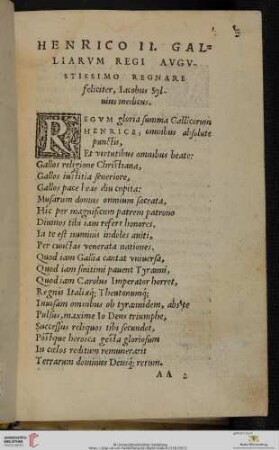 HENRICO II. GAL=
LIARVM REGI AVGV-
STISSIMO REGNARE
feliciter, Iacobus Syl-
uius medicus.
REGVM gloria summa Gallicorum
HENRICE; omnibus absolute
punctis,
Et virtutibus omnibus beate:
Gallos religione Christiana,
Gallos iustitia seueriore,
Gallos pace beas diu cupita:
Musarum domus omnium sacrata,
Hic per magnificum patrem patrono
Diuinos tibi iam refert honores.
Ia te est numinis indoles auiti,
Per cunctas venerata nationes,
Quod iam Gallia cantat vniuersa,
Quod iam finitimi pauent Tyranni,
Quod iam Carolus Imperator horret,
Regnis Italiaq; Theutonumq;
Inuisam omnibus ob tyrannidem, abs te
Pulsus, maxime Io Deus triumphe,
Successus reliquos tibi secundet,
Póstque heroica gesta gloriosum
In cælos reditum remunerarit
Terrarum dominus Deusq; rerum.
AA 2